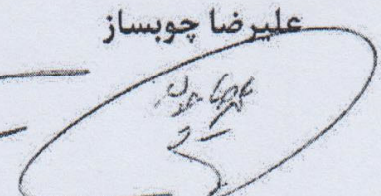 علیرضا چوبساز